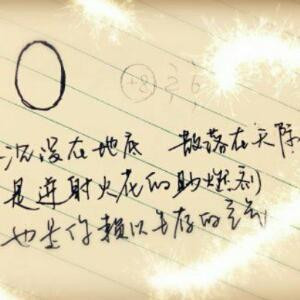 O +8 2 6
沉没在地底 散落在天际
是迸射火花的助燃剂
也是你賴以生存的氧气